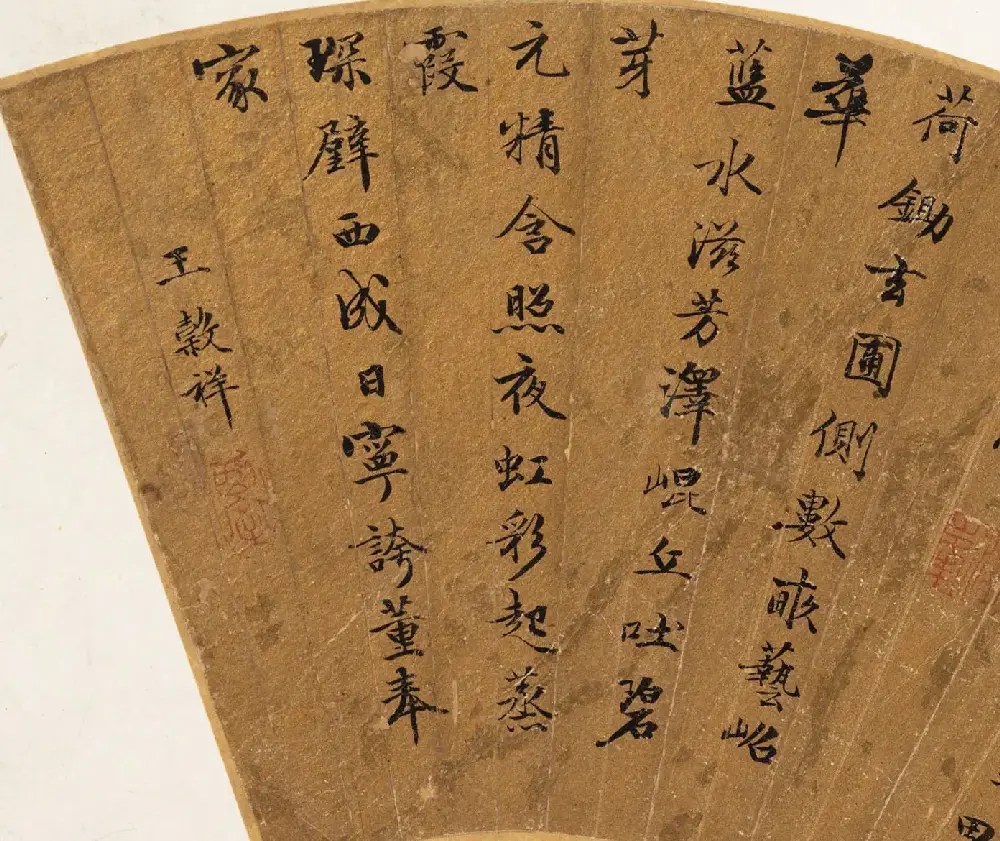 荷鋤玄圃側數畹藝岧
華
藍水滋芳澤崐丘吐碧
芽
元精含照夜虹彩起蒸
霞
琛璧西成日寧誇董奉
家
王穀祥